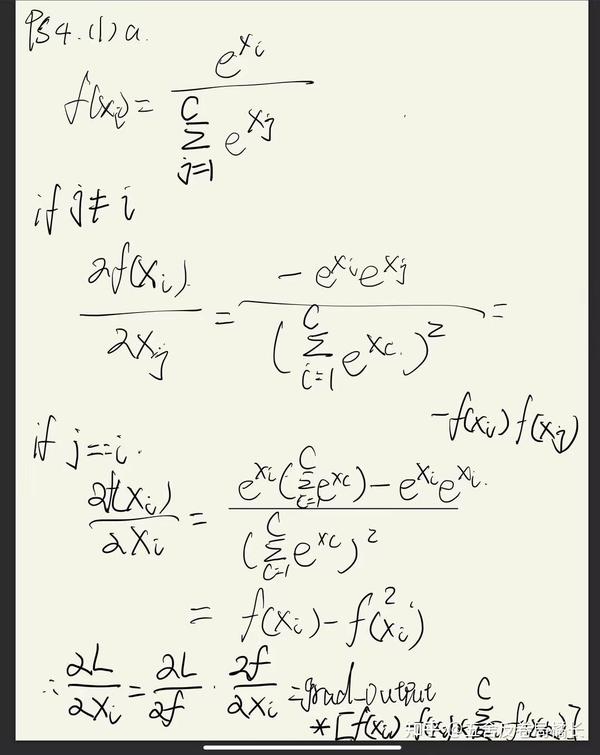 PS4.(1)a.
f(xᵢ) = e^{xᵢ} / Σ_{j=1}^{C} e^{xⱼ}
if j ≠ i
∂f(xᵢ)/∂xⱼ = -e^{xᵢ}e^{xⱼ} / (Σ_{c=1}^{C} e^{x_c})² =
-f(xᵢ)f(xⱼ)
if j==i.
∂f(xᵢ)/∂xᵢ = (e^{xᵢ}(Σ_{c=1}^{C} e^{x_c}) - e^{xᵢ}e^{xᵢ}) / (Σ_{c=1}^{C} e^{x_c})²
= f(xᵢ) - f(xᵢ)²
∴ ∂L/∂xᵢ = ∂L/∂f · ∂f/∂xᵢ = grad_output
* [f(xᵢ) f(xⱼ)]